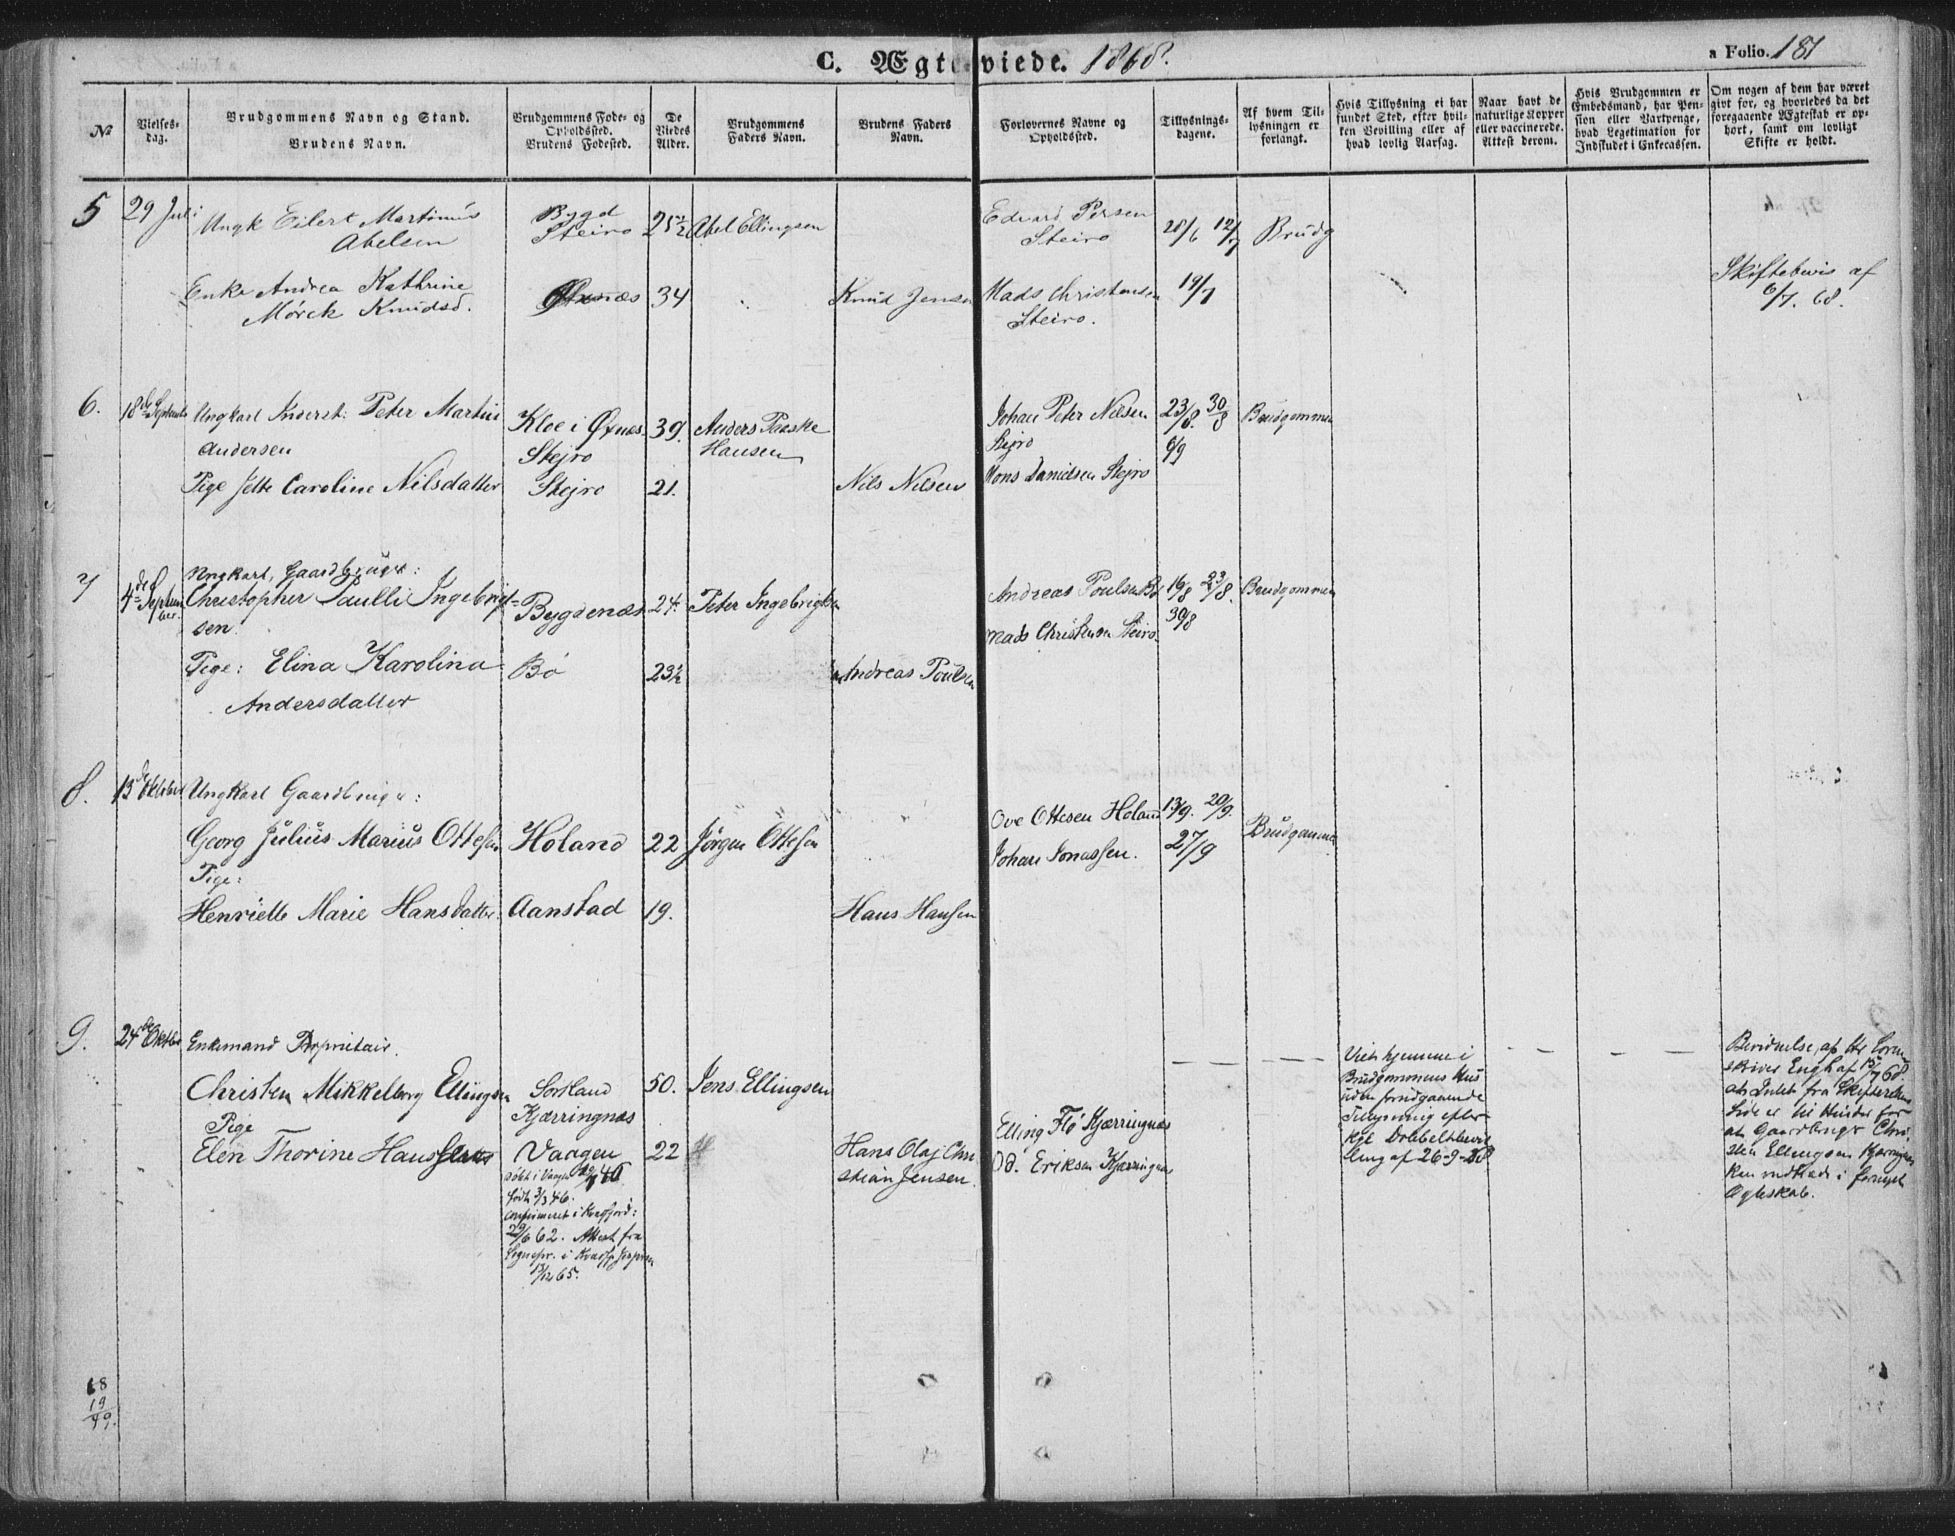 C. Ægteviede. 1868.
a Folio. 181
№
Vielses-
dag.
Brudgommens Navn og Stand.
Brudens Navn.
Brudgommens Føde- og
Opholdssted.
Brudens Fødested.
De
Viedes
Alder.
Brudgommens
Faders Navn.
Brudens Faders
Navn.
Forlovernes Navne og
Opholdssted.
Tillysnings-
dagene.
Af hvem Til-
lysningen er
forlangt.
Hvis Tillysning ei har
fundet Sted, efter hvil-
ken Bevilling eller af
hvad lovlig Aarsag.
Naar havt de
naturlige Kopper
eller vaccinerede.
Attest derom.
Hvis Brudgommen er
Embedsmand, har Pen-
sion eller Vartpenge,
hvad Legetimation for
Indskudet i Enkecassen.
Om nogen af dem har været
givt før, og hvorledes da det
foregaaende Ægteskab er op-
hørt, samt om lovligt
Skifte er holdt.
5
29 Juli
Ungk Eilert Martinus
Abelsen
Bygd
Steiro
25½
Abel Ellingsen
Edvard Persen
Steiro
28/6 12/7
Brudg
Enke Andrea Kathrine
Mörck Knudsd.
Øxnæs
34
Knud Jensen
Mads Christensen
Steiro.
19/7
Skiftebevis af
6/7. 68.
6.
18de September
Ungkarl Inderst: Peter Martin
Andersen
Kloe i Øxnæs
Stejro
39.
Anders Paaske
Hansen
Johan Peter Nilsen
Stejro
23/8. 30/8
6/9
Brudgommen
Pige Jette Caroline Nilsdatter
Stejro
21.
Nils Nilsen
Mons Danielsen Stejro
7
4de September.
Ungkarl, Gaardbruger:
Christopher Paulli Ingebrigt-
sen.
Bygdenæs
24.
Peter Ingebrigtsen
Andreas Poulsen Bö
16/8 23/8.
30/8
Brudgommen
Mads Christensen Steiro.
Pige: Elina Karolina
Andersdatter
Bö
23½
Andreas Poulsen
8.
13de Oktober
Ungkarl Gaardbruger:
Georg Julius Marius Ottesen
Holand
22
Jörgen Ottesen
Ove Ottesen Holand
13/9. 20/9.
27/9
Brudgommen
Johan Jonassen.
Pige:
Henriette Marie Hansdatter.
Aanstad
19.
Hans Hansen
9.
24de Oktober
Enkemand Proprietair.
Christen Mikkelborg Ellingsen
Sortland
Kjærringnæs
50.
Jens Ellingsen
Elling Flö Kjærringnæs
Od. Eriksen Kjærringnæs
Viet hjemme i
Brudgommens Hus
uden forudgaaende
Tillysning efter
Kgl Dobbeltbevil
ling af 26-9-68
af Hr Soren
skriver Engh af 15/7 68.
at Intet fra Skifterettens
Side er til Hinder for
at Gaardbruger Chri-
sten Ellingsen Kjærringnæs
kan indtræde i fornyet
Ægteskab.
Pige
Elen Thorine Hans
Vaagen
22
Hans Olaj Chri
stian Jensen.
döbt i Vaagen
födt 3/3 46.
confirmeret i Kvæfjord:
29/6 62. Attest fra
Sognepr. i Kvæfj.
13/12 65.
68
19
49.